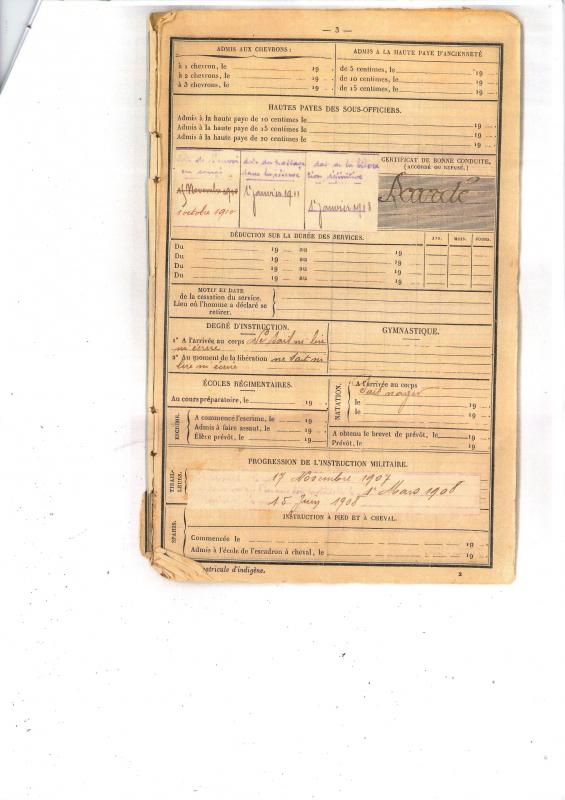 — 3 —
ADMIS AUX CHEVRONS :
à 1 chevron, le 19
à 2 chevrons, le 19
à 3 chevrons, le 19
ADMIS A LA HAUTE PAYE D'ANCIENNETÉ
de 5 centimes, le 19
de 10 centimes, le 19
de 15 centimes, le 19
HAUTES PAYES DES SOUS-OFFICIERS.
Admis à la haute paye de 10 centimes le 19
Admis à la haute paye de 15 centimes le 19
Admis à la haute paye de 20 centimes le 19
date du passage
dans la réserve
1er janvier 1911
tion définitive
1er janvier 1918
Novembre 1910
1 octobre 1910
CERTIFICAT DE BONNE CONDUITE.
(ACCORDÉ OU REFUSÉ.)
DÉDUCTION SUR LA DURÉE DES SERVICES.
ANS. MOIS. JOURS.
Du 19 au 19
Du 19 au 19
Du 19 au 19
Du 19 au 19
MOTIF ET DATE
de la cessation du service.
Lieu où l'homme a déclaré se
retirer.
DEGRÉ D'INSTRUCTION.
1° A l'arrivée au corps Ne sait ni lire
ni écrire
2° Au moment de la libération ne sait ni
lire ni écrire
GYMNASTIQUE.
ÉCOLES RÉGIMENTAIRES.
Au cours préparatoire, le 19
ESCRIME.
A commencé l'escrime, le 19
Admis à faire assaut, le 19
Élève prévôt, le 19
NATATION.
A l'arrivée au corps
Sait nager
le 19
le 19
A obtenu le brevet de prévôt, le 19
Prévôt, le 19
PROGRESSION DE L'INSTRUCTION MILITAIRE.
TIRAIL-
LEURS.
17 Novembre 1907
1er Mars 1908
15 Juin 1908
SPAHIS.
INSTRUCTION A PIED ET A CHEVAL.
Commencée le 19
Admis à l'école de l'escadron à cheval, le 19
matricule d'indigène.
2